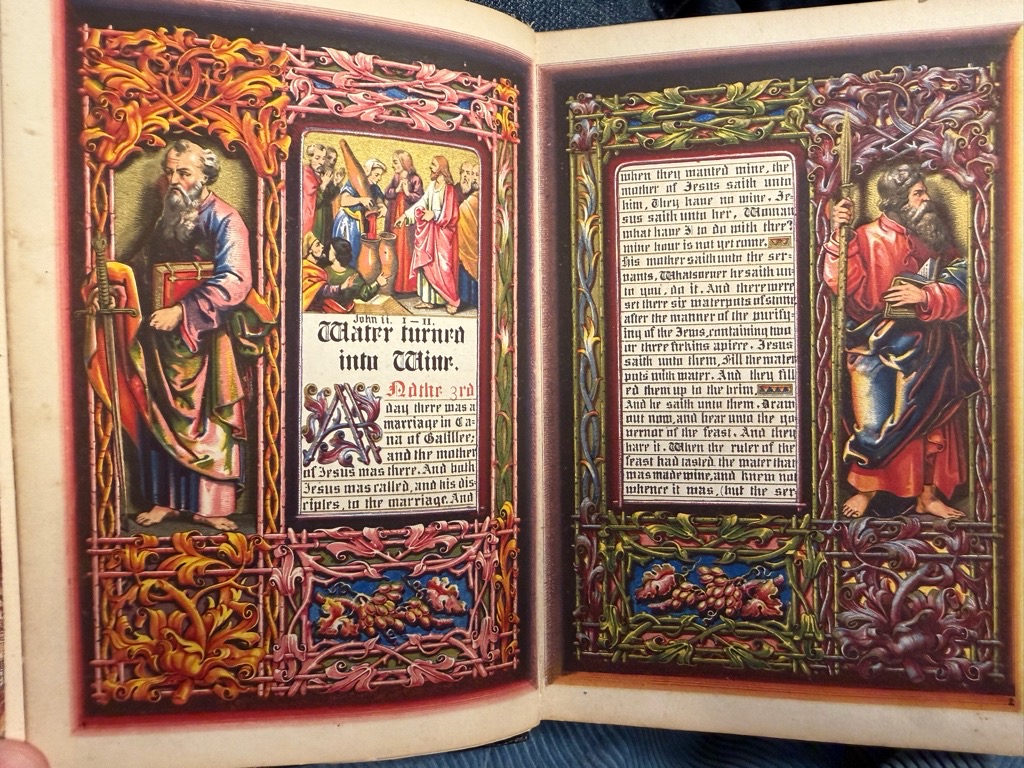 John ii. 1–11.
Water turned
into Wine.
And the 3rd
day there was a
marriage in Ca-
na of Galillee;
and the mother
of Jesus was there. And both
Jesus was called, and his dis-
ciples, to the marriage. And
when they wanted wine, the
mother of Jesus saith unto
him, They have no wine. Je-
sus saith unto her, Woman
what have I to do with thee?
mine hour is not yet come.
his mother saith unto the ser-
vants, Whatsoever he saith un-
to you, do it. And there were
set there six waterpots of stone
after the manner of the purify-
ing of the Jews, containing two
or three firkins apiece. Jesus
saith unto them, Fill the water
pots with water. And they fill
ed them up to the brim
And he saith unto them. Draw
out now, and bear unto the go
vernor of the feast. And they
bare it. When the ruler of the
feast had tasted the water that
was made wine, and knew not
whence it was, (but the ser-